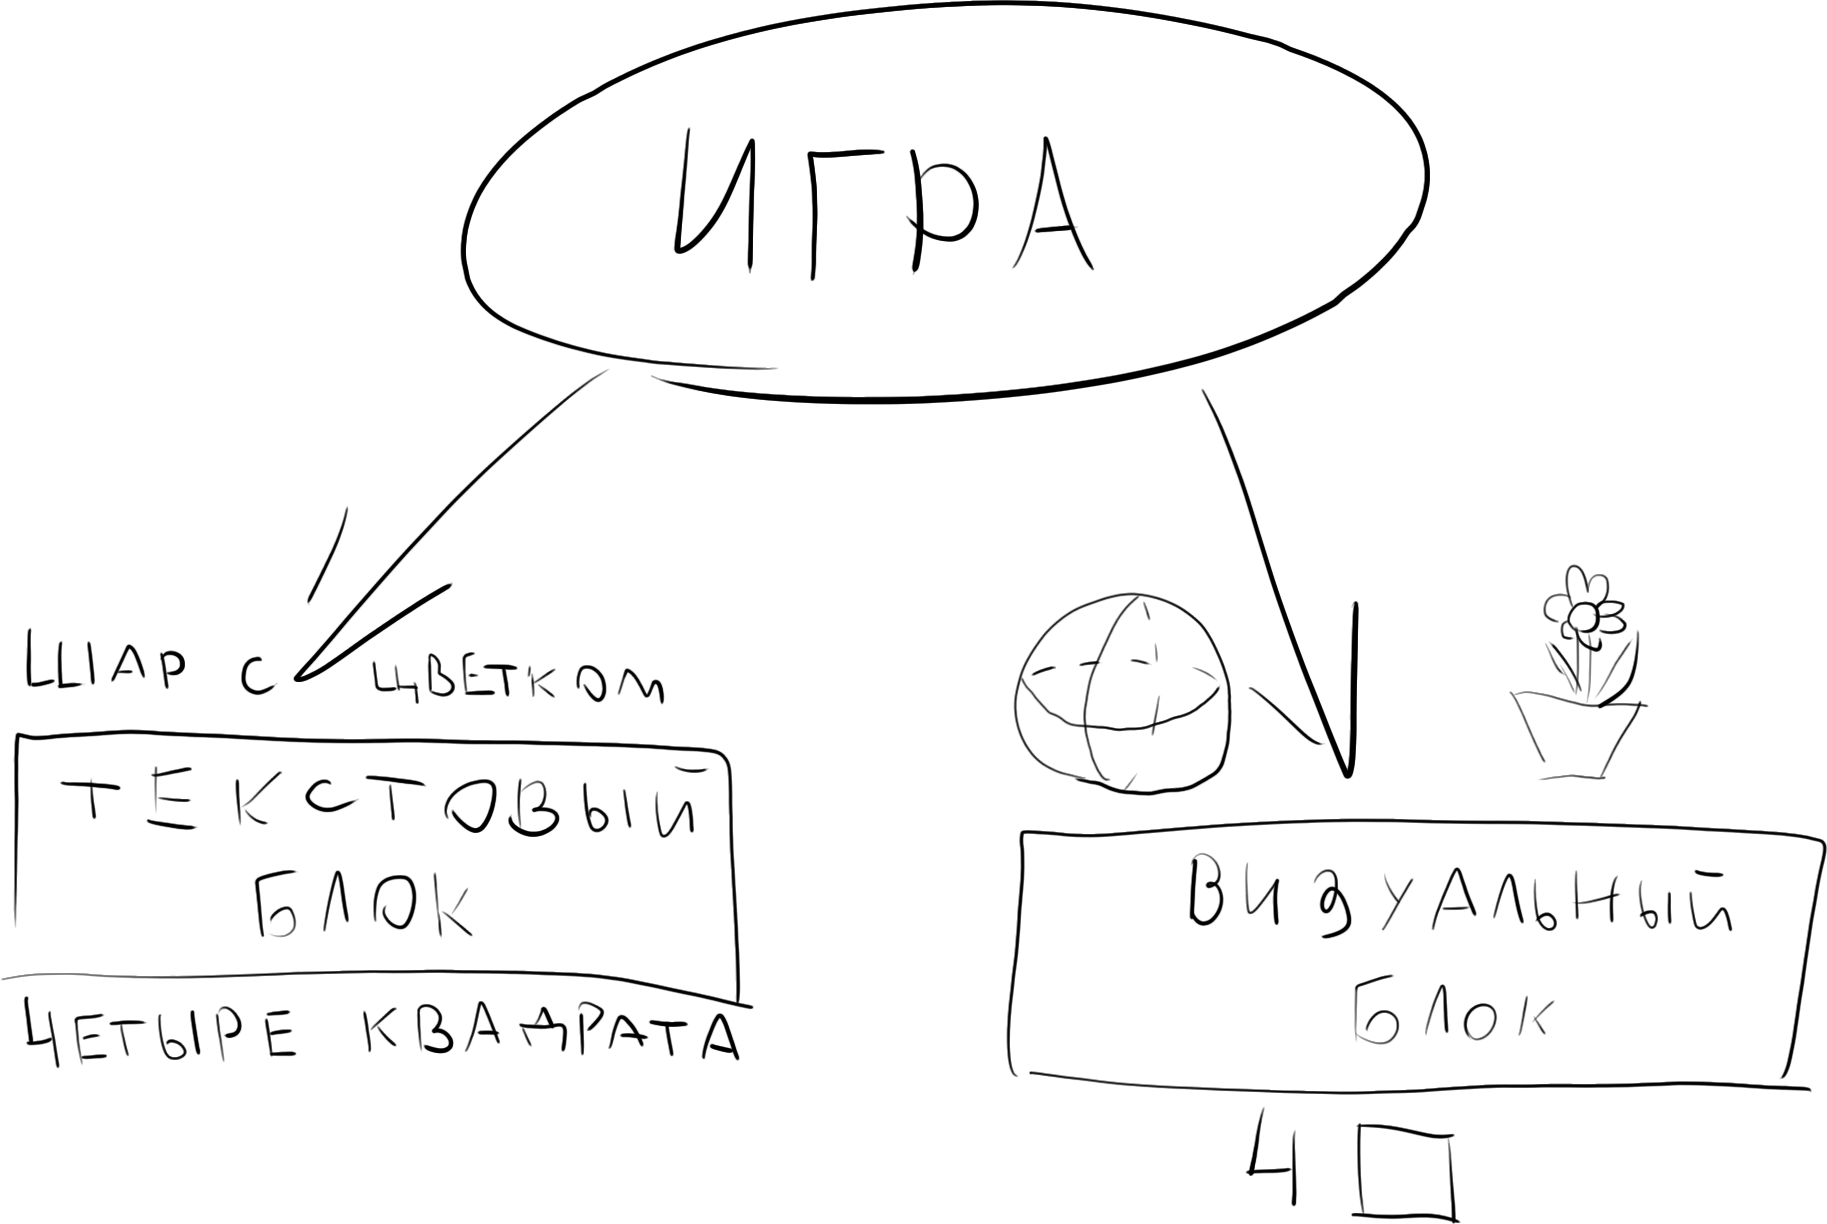 ИГРА
ШАР С ЦВЕТКОМ
ТЕКСТОВЫЙ
БЛОК
ЧЕТЫРЕ КВАДРАТА
ВИЗУАЛЬНЫЙ
БЛОК
4